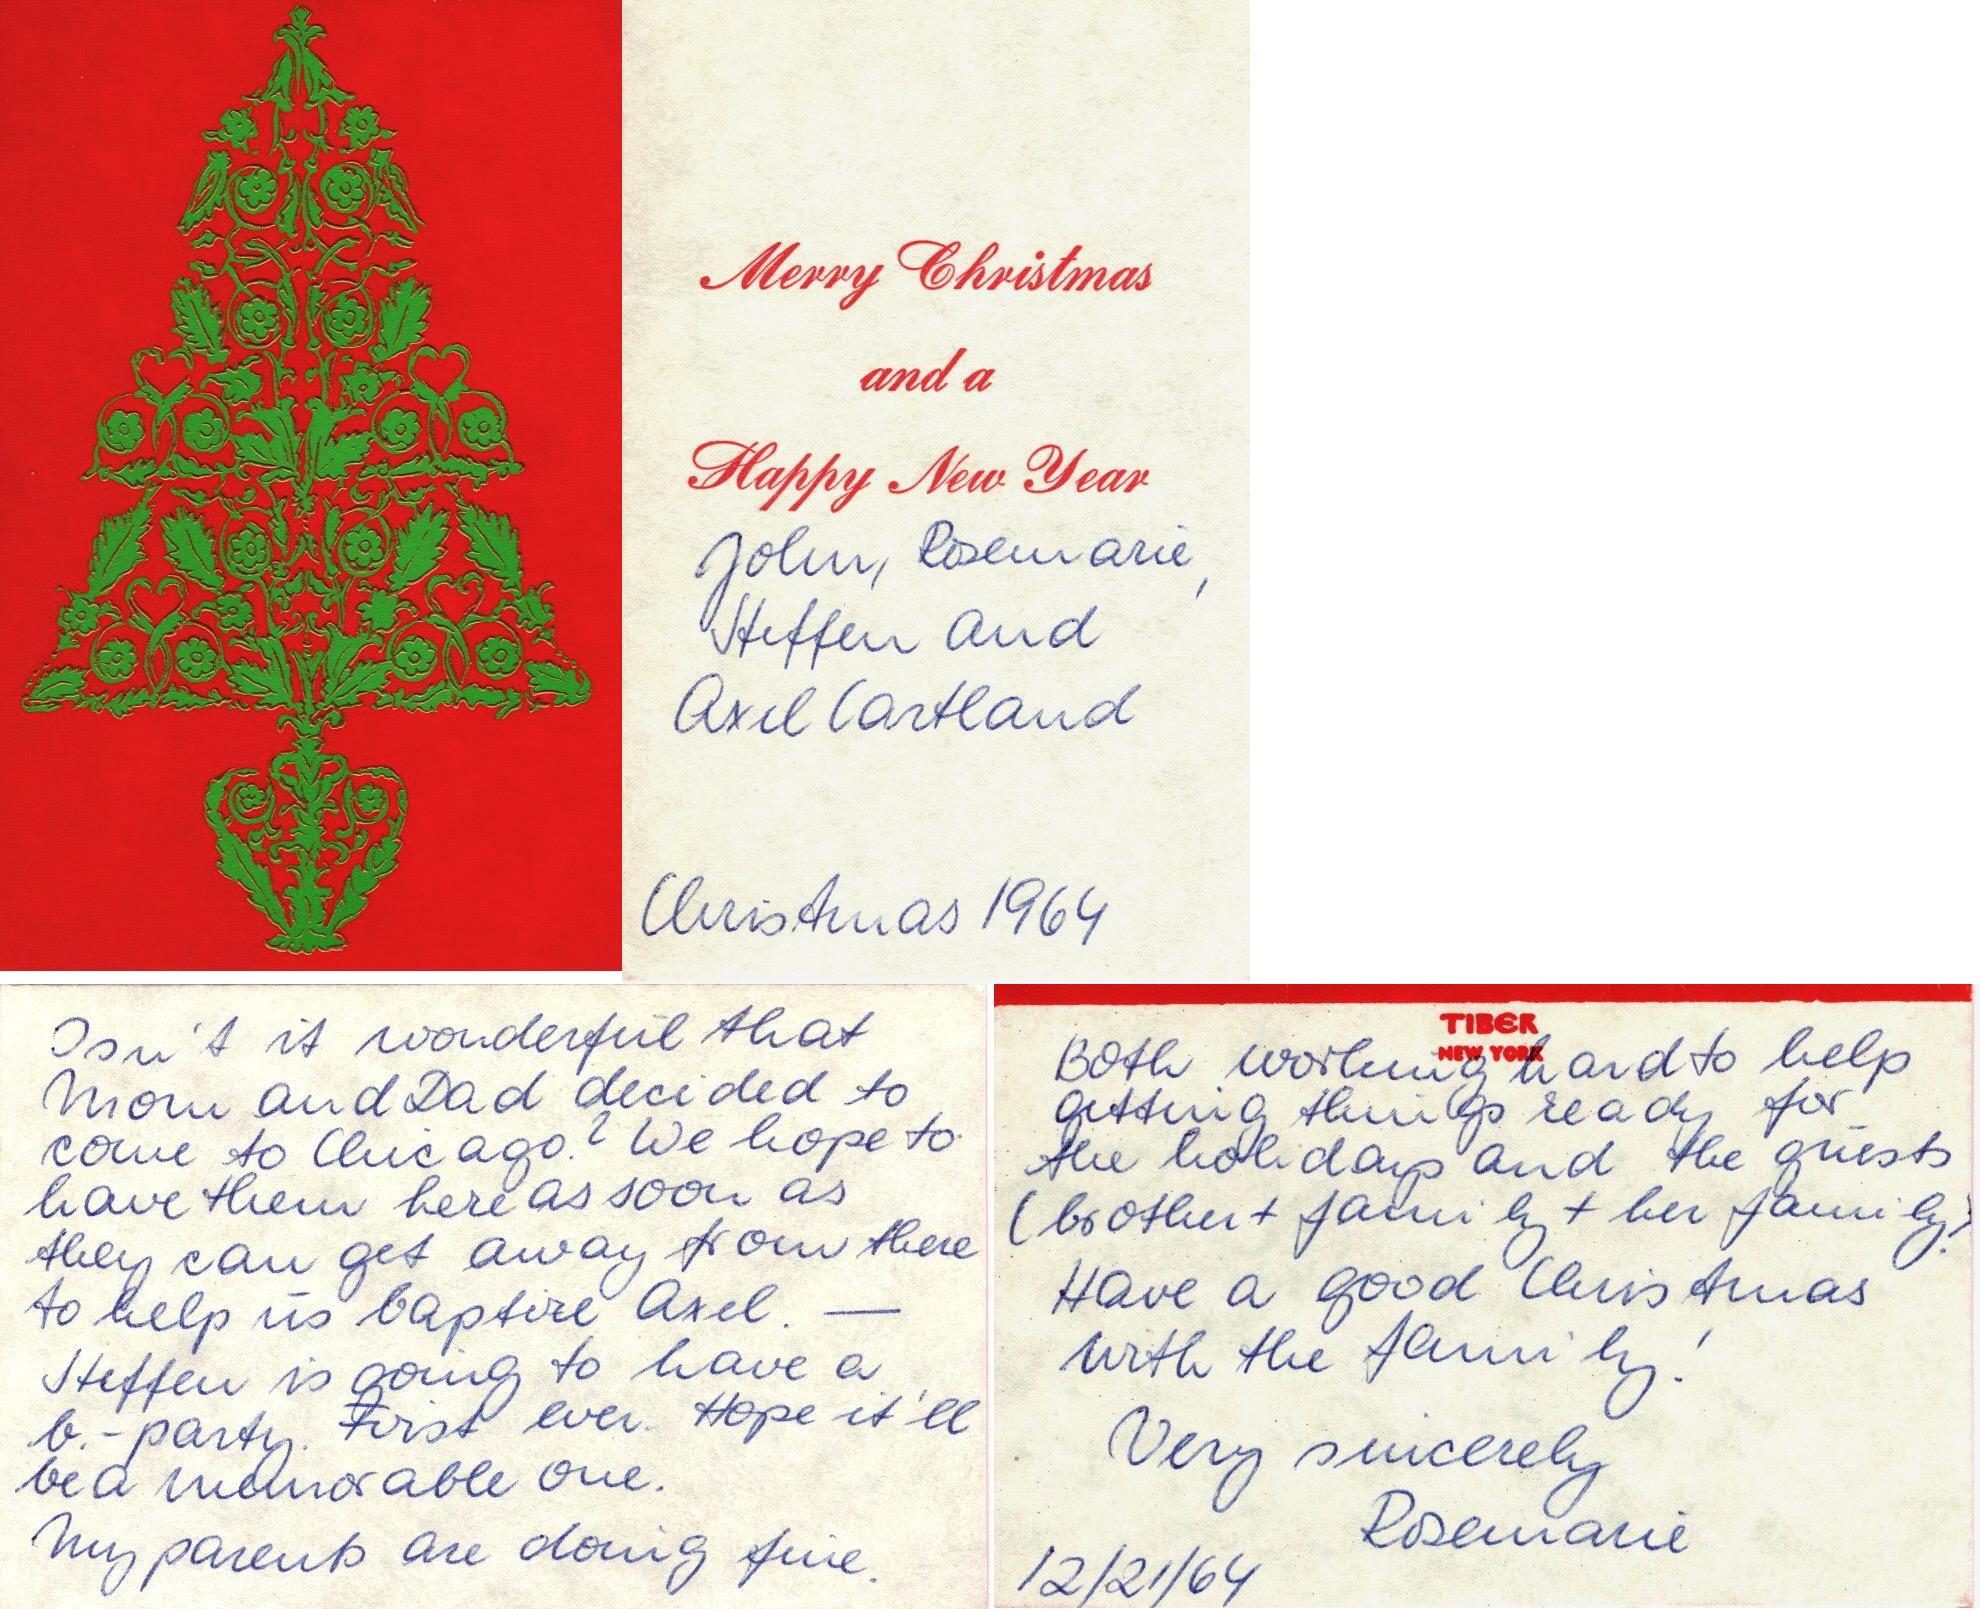 Merry Christmas
and a
Happy New Year
John, Rosemarie,
Steffen and
Axel Cartland
Christmas 1964
Isn't it wonderful that
Mom and Dad decided to
come to Chicago? We hope to
have them here as soon as
they can get away from there
to help us baptize Axel. —
Steffen is going to have a
b.-party. First ever. Hope it'll
be a memorable one.
My parents are doing fine.
TIBER
NEW YORK
Both working hard to help
getting things ready for
the holidays and the guests
(brother + family + her family!)
Have a good Christmas
with the family!
Very sincerely
Rosemarie
12/21/64